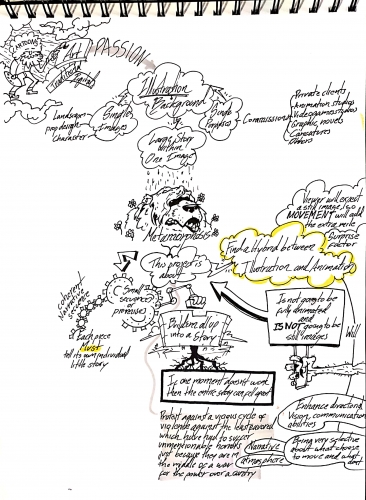 CARTOONS
Art
Traditional
Digital
PASSION
Illustration
Background
Landscape
prop design
Character
Single
Images
Single
Purposes
Commissions
Private clients
Animation studios
Videogames studios
Graphic novels
Caricatures
Others
Large Story
Within
One Image
Metamorphosis
Viewer will expect
a still image, so
MOVEMENT will add
the extra mile
Surprise
factor
Find a Hybrid between
Illustration and Animation
This project is
about
Small
sequence
Coherent
Narrative
Each piece
must
tell its own individual
little story
Is not going to be
fully animated
and
IS NOT going to be
still images
Will
into a Story
If one moment doesn't work
then the entire story can fall apart
Enhance directing
Vision, communication
abilities
Being very selective
about what choose
to move and what
don't
Protest against a vicious cycle of
violence against the
which have had to suffer
unmentionable horrors
just because they are in
the middle of a war
for the power over a country
Narrative
atmosphere